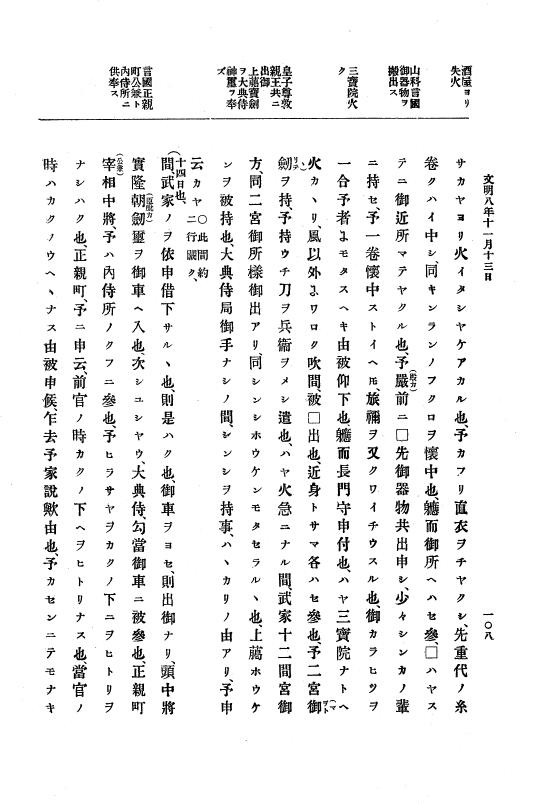 文明八年十一月十三日
一〇八
酒屋ヨリ
失火
山科言國
御器物ヲ
搬出ス
三寶院火
ク
皇子尊敦
親王共ニ
出御
上﨟寶劒
ヲ大典侍
神璽ヲ奉
ズ
言國正親
町公兼ト
內侍所ニ
供奉ス
サカヤヨリ火イタシヤケアカル也、予カフリ直衣ヲチヤクシ、先重代ノ糸
卷クハイ中シ、同キンランノフクロヲ懷中也、軈而御所へハセ參、□ハヤス
テニ御近所マテヤクル也、予嚴(殿カ)前ニ□先御器物共出申シ、少々シンカノ輩
ニ持セ、予一卷懷中ストイヘモ、旅禰ヲ又クワイチウスル也、御カラヒツヲ
一合予者ヨモタスヘキ由被仰下也、軈而長門守申付也、ハヤ三寶院ナトヘ
火カヽリ風以外ヨワロク吹間、被□出也、近身トサマ各ハセ參也、予二宮御
劒ヲ持、予持ウチ刀ヲ兵衞ヲメシ遣也、ハヤ火急ニナル間、武家十二間宮御
方、同二宮御所樣御出アリ、同シンシホウケンモタセラルヽ也、上﨟ホウケ
ンヲ被持也、大典侍局御手ナシノ間、シンシヲ持事、ハヽカリノ由アリ、予申
云カヤ〇此間約二行闕ク、
(十四日也、)間、武家ノヲ依申借下サルヽ也、則是ハク也、御車ヲヨセ、則出御ナリ、頭中將
實隆朝劒璽ヲ御車ヘ入也、次シユシヤウ、大典侍、勾當御車ニ被參也、正親町
(公兼)宰相中將、予ハ內侍所ノクフニ參也、予ヒラサヤヲカクノ下ニヲヒトリヲ
ナシハク也、正親町、予ニ申云、前官ノ時カクノ下ヘヲヒトリナス也、當官ノ
時ハカクノウヘヽナス由被申候、乍去予家說歟由也、予カセンニテモナキ